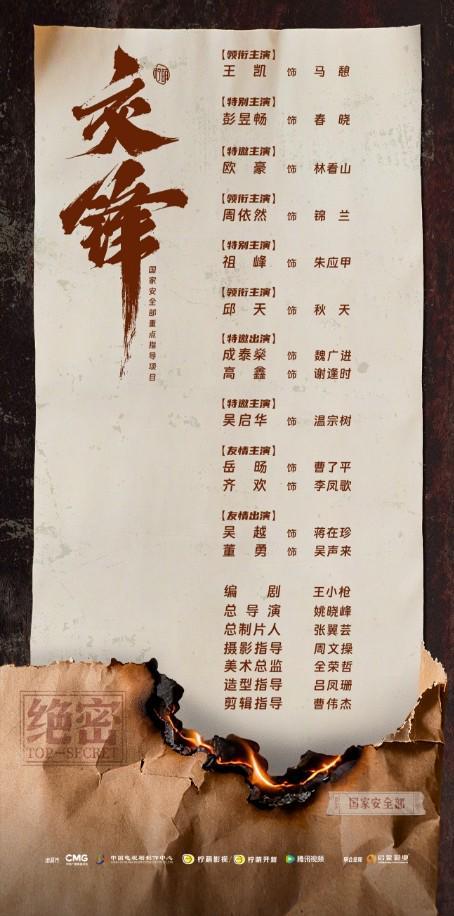 交锋
柠萌
国家安全部重点指导项目
【领衔主演】
王凯 饰 马憩
【特别主演】
彭昱畅 饰 春晓
【特邀主演】
欧豪 饰 林看山
【领衔主演】
周依然 饰 锦兰
【特别主演】
祖峰 饰 朱应甲
【领衔主演】
邱天 饰 秋天
【特邀出演】
成泰燊 饰 魏广进
高鑫 饰 谢逢时
【特邀主演】
吴启华 饰 温宗树
【友情主演】
岳旸 饰 曹了平
齐欢 饰 李凤歌
【友情出演】
吴越 饰 蒋在珍
董勇 饰 吴声来
编剧 王小枪
总导演 姚晓峰
总制片人 张翼芸
摄影指导 周文操
美术总监 全荣哲
造型指导 吕凤珊
剪辑指导 曹伟杰
绝密
TOP-SECRET
国家安全部
出品方 CMG 中国电视剧制作中心 柠萌影视/柠萌开新 腾讯视频